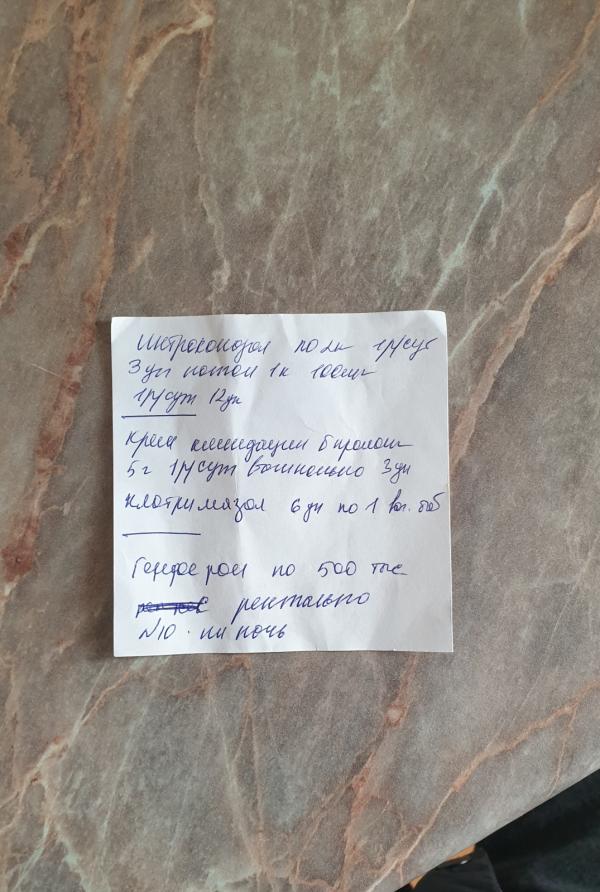 Итраконазол по 2к 1р/сут
3 дн потом 1к 100мг
1р/сут 12дн
Крем клиндацин б пролонг
5 г 1р/сут вагинально 3 дн
Клотримазол 6 дн по 1 ваг. таб
Генферон по 500 тыс
ректально
N10 на ночь